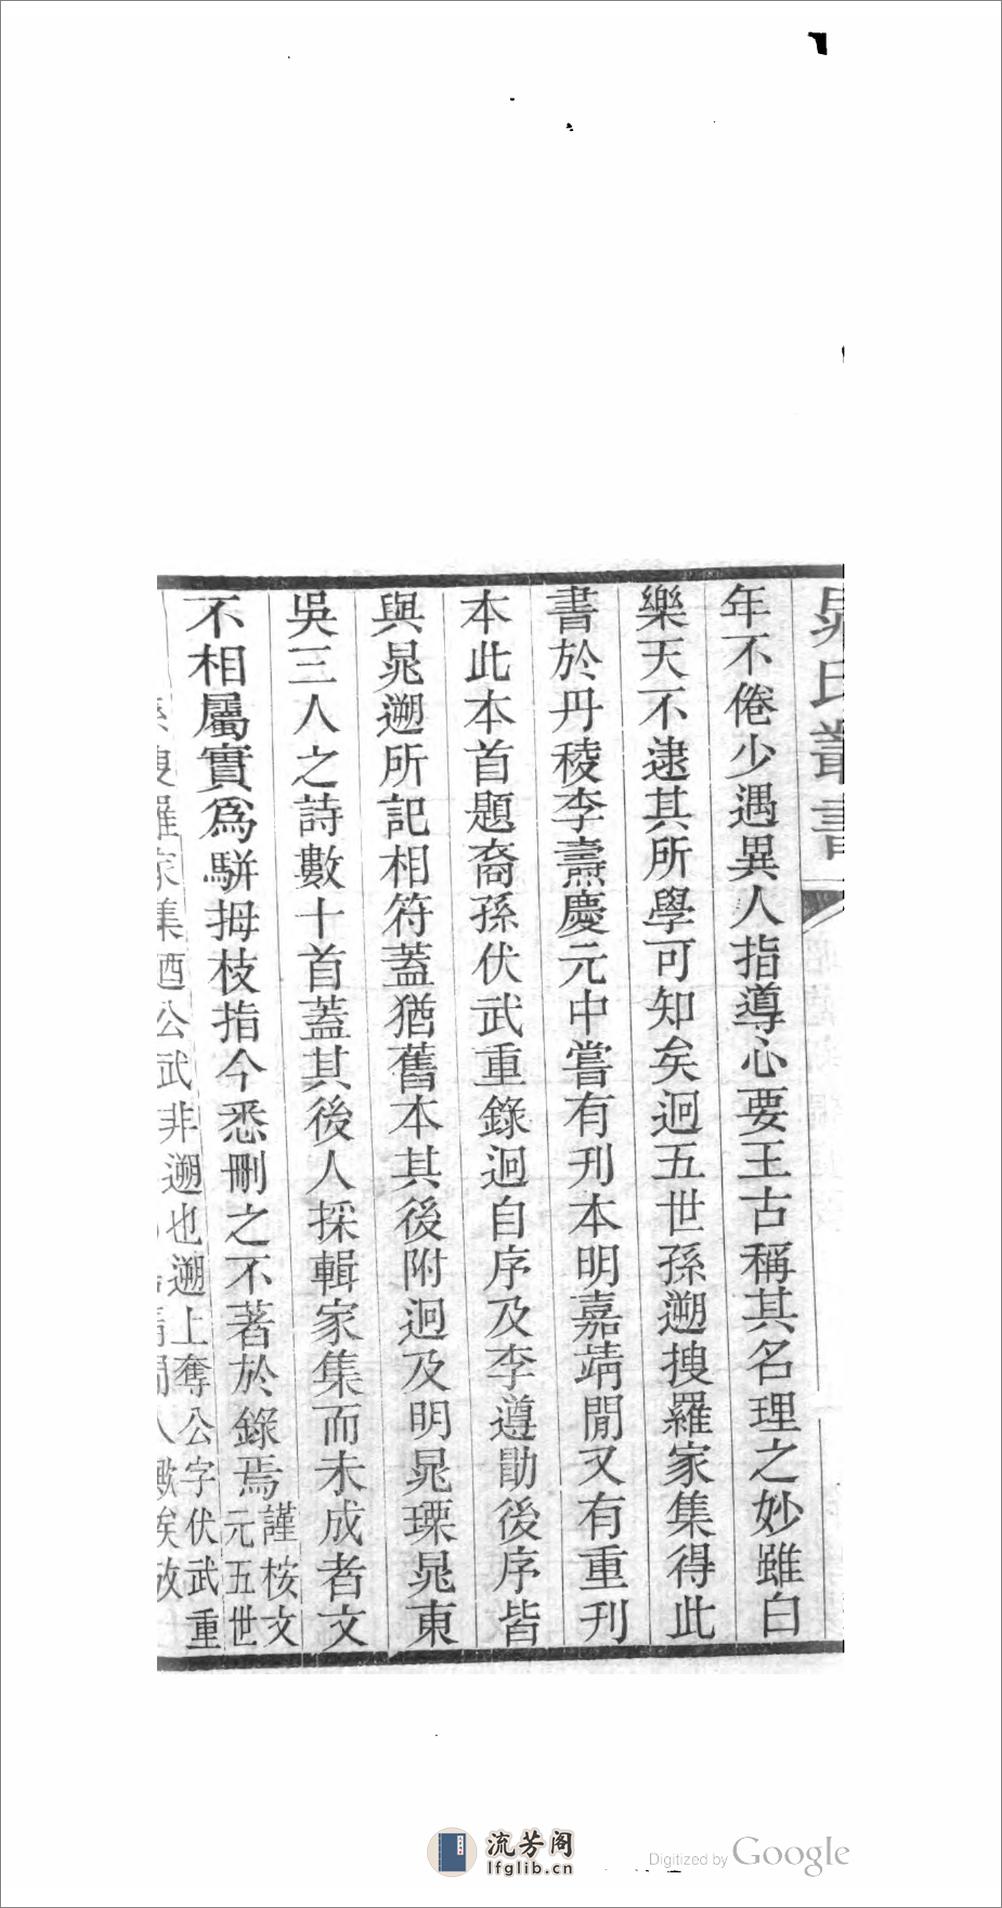 晁氏叢書
年不倦少遇異人指導心要王古稱其名理之妙雖白
樂天不逮其所學可知矣迥五世孫遡捜羅家集得此
書於丹稜李燾慶元中嘗有刊本明嘉靖閒又有重刊
本此本首題裔孫伏武重錄迥自序及李遵勖後序皆
與晁遡所記相符蓋猶舊本其後附迥及明晁瑮晁東
吳三人之詩數十首蓋其後人採輯家集而未成者文
不相屬實爲駢拇枝指今悉刪之不著於錄焉
謹桉文
元五世
公武非遡也遡上奪公字伏武重
羅家集迺
流芳阁
lfglib.cn
Digitized by Google